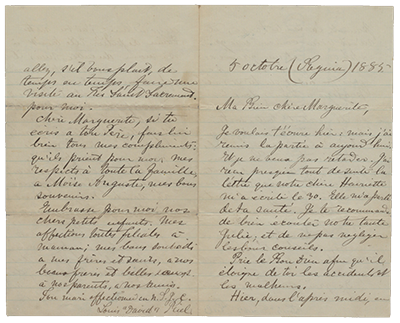 allez, s'il vous plait, de
temps en temps, faire une
visite au Très Saint Sacrement
pour moi.
Chère Marguerite, si tu
vois ton Père, fais lui
bien tous mes compliments:
qu'ils prient pour moi. mes
respects à toute la famille,
a Moise Auguste, mes bons
souvenirs.
Embrasse pour moi nos
chers petits enfants. Mes
affections toutes filiales à
maman; mes bons souhaits
a mes frères et sœurs, a nos
beaux frères et belles sœurs
à nos parents, a nos amis.
Ton mari affectionné en N.S.J.C.
Louis "David" Riel
5 octobre (Regina) 1885
Ma Bien chère Marguerite,
Je voulais t'écrire hier: mais j'ai
remis la partie à aujourd'hui
Et je ne veux pas retarder. J'ai
reçu presque tout de suite la
lettre que notre chère Henriette
m'a écrite le 30. Elle m'a parlé
de ta santé. Je te recommande
de bien écouter notre toute
Julie, et de ne pas négliger
les bons conseils.
Prie le Bon Dieu afin qu'il
éloigne de toi les accidents et
les malheurs.
Hier, dans l'après midi, en